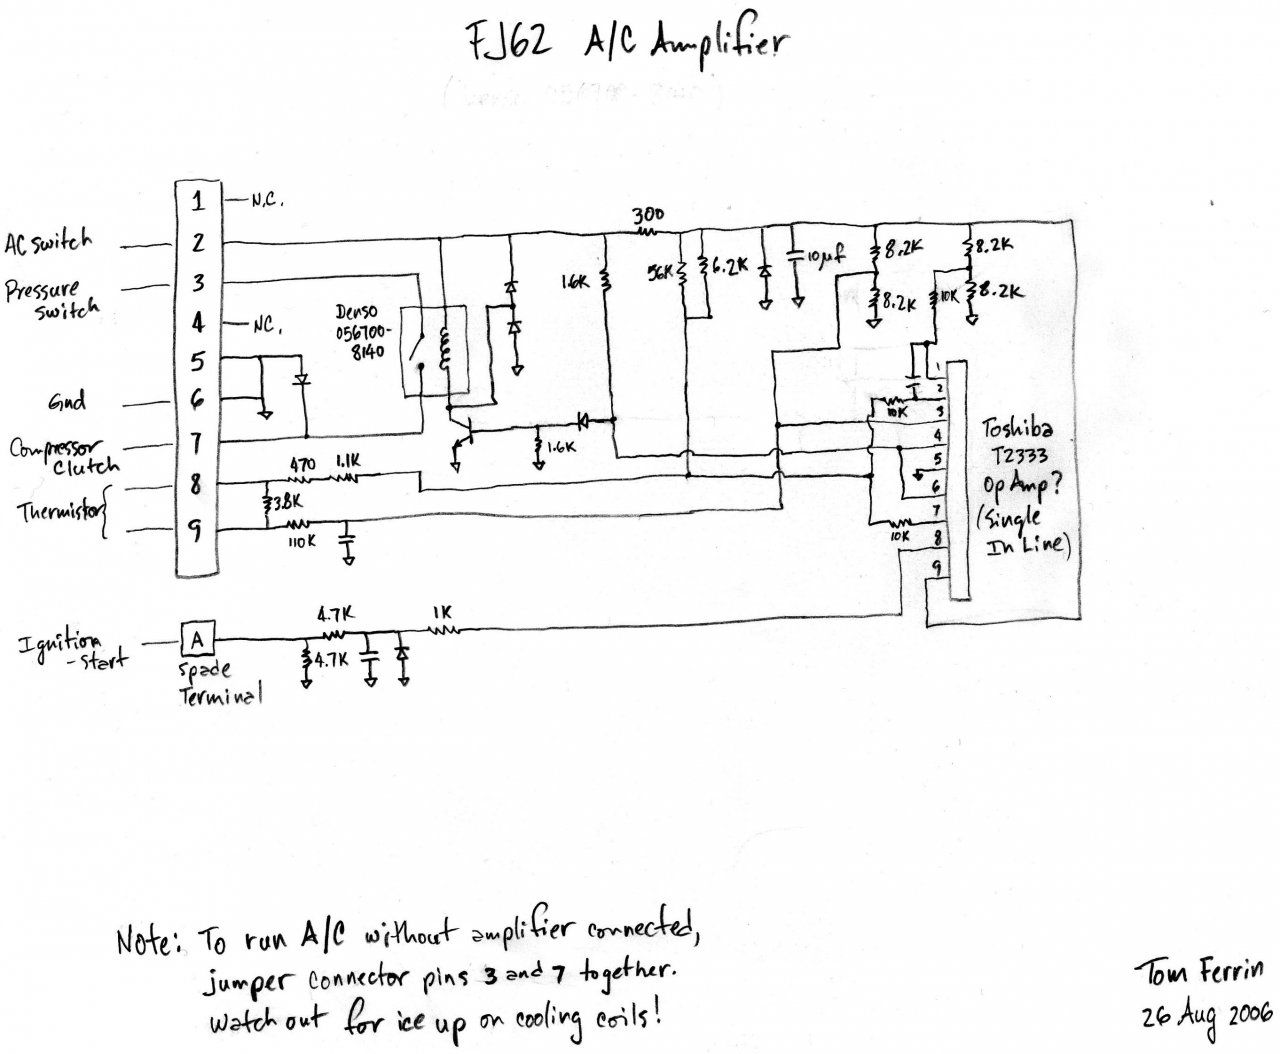 FJ62 A/C Amplifier
1 N.C.
AC Switch 2
Pressure Switch 3
4 NC.
5
Gnd 6
Compressor Clutch 7
Thermistor 8
9
Denso
056700-
8140
300
1.6K
56K
6.2K
10µf
8.2K
8.2K
8.2K
8.2K
10K
10K
10K
1.6K
470
1.1K
3.8K
110K
1
2
3
4
5
6
7
8
9
Toshiba
T2333
Op Amp?
(Single
In Line)
Ignition
-Start
A
Spade
Terminal
4.7K
4.7K
1K
Note: To run A/C without amplifier connected,
jumper connector pins 3 and 7 together.
Watch out for ice up on cooling coils!
Tom Ferrin
26 Aug 2006